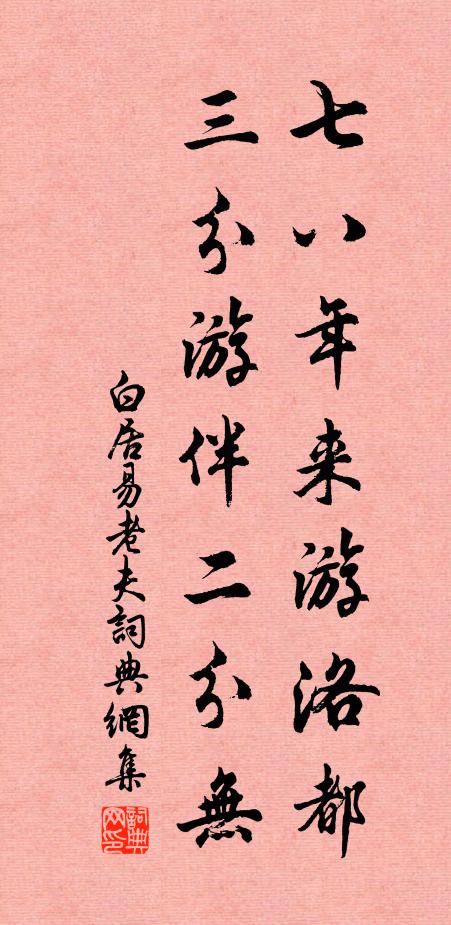 七八年来游洛都
三分游伴二分無
白居易老夫詞典網集
詞典网印